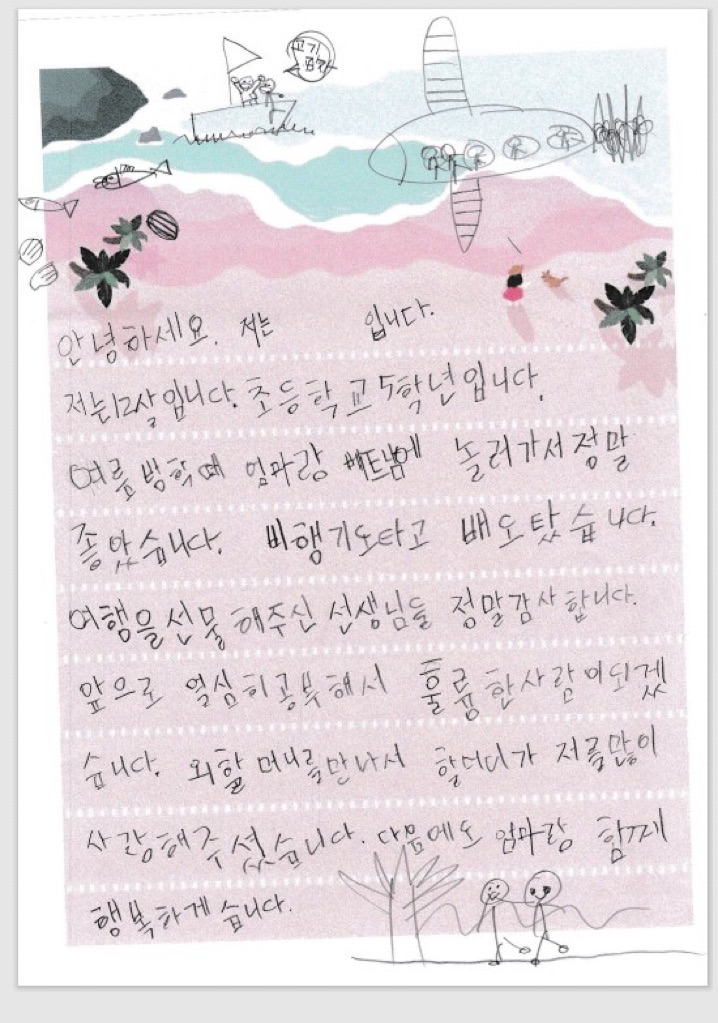 고기
잡자
안녕하세요. 저는 입니다.
저는12살입니다. 초등학교 5학년입니다.
여름 방학때 엄마랑 베트남에 놀러가서 정말
좋았습니다. 비행기도타고 배도탔습니다.
여행을선물해주신 선생님들 정말감사합니다.
앞으로 열심히공부해서 훌륭한사람이되겠
습니다. 외할머니를만나서 할머니가 저를많이
사랑해주셨습니다. 다음에도 엄마랑 함께
행복하게습니다.